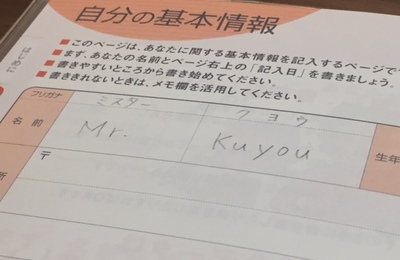 自分の基本情報
■このページは、あなたに関する基本情報を記入するページで
■まず、あなたの名前とページ右上の「記入日」を書きましょう。
■書きやすいところから書き始めてください。
■書ききれないときは、メモ欄を活用してください。
はじめに
フリガナ ミスター クヨウ
名前 Mr. Kuyou 生年
〒
所